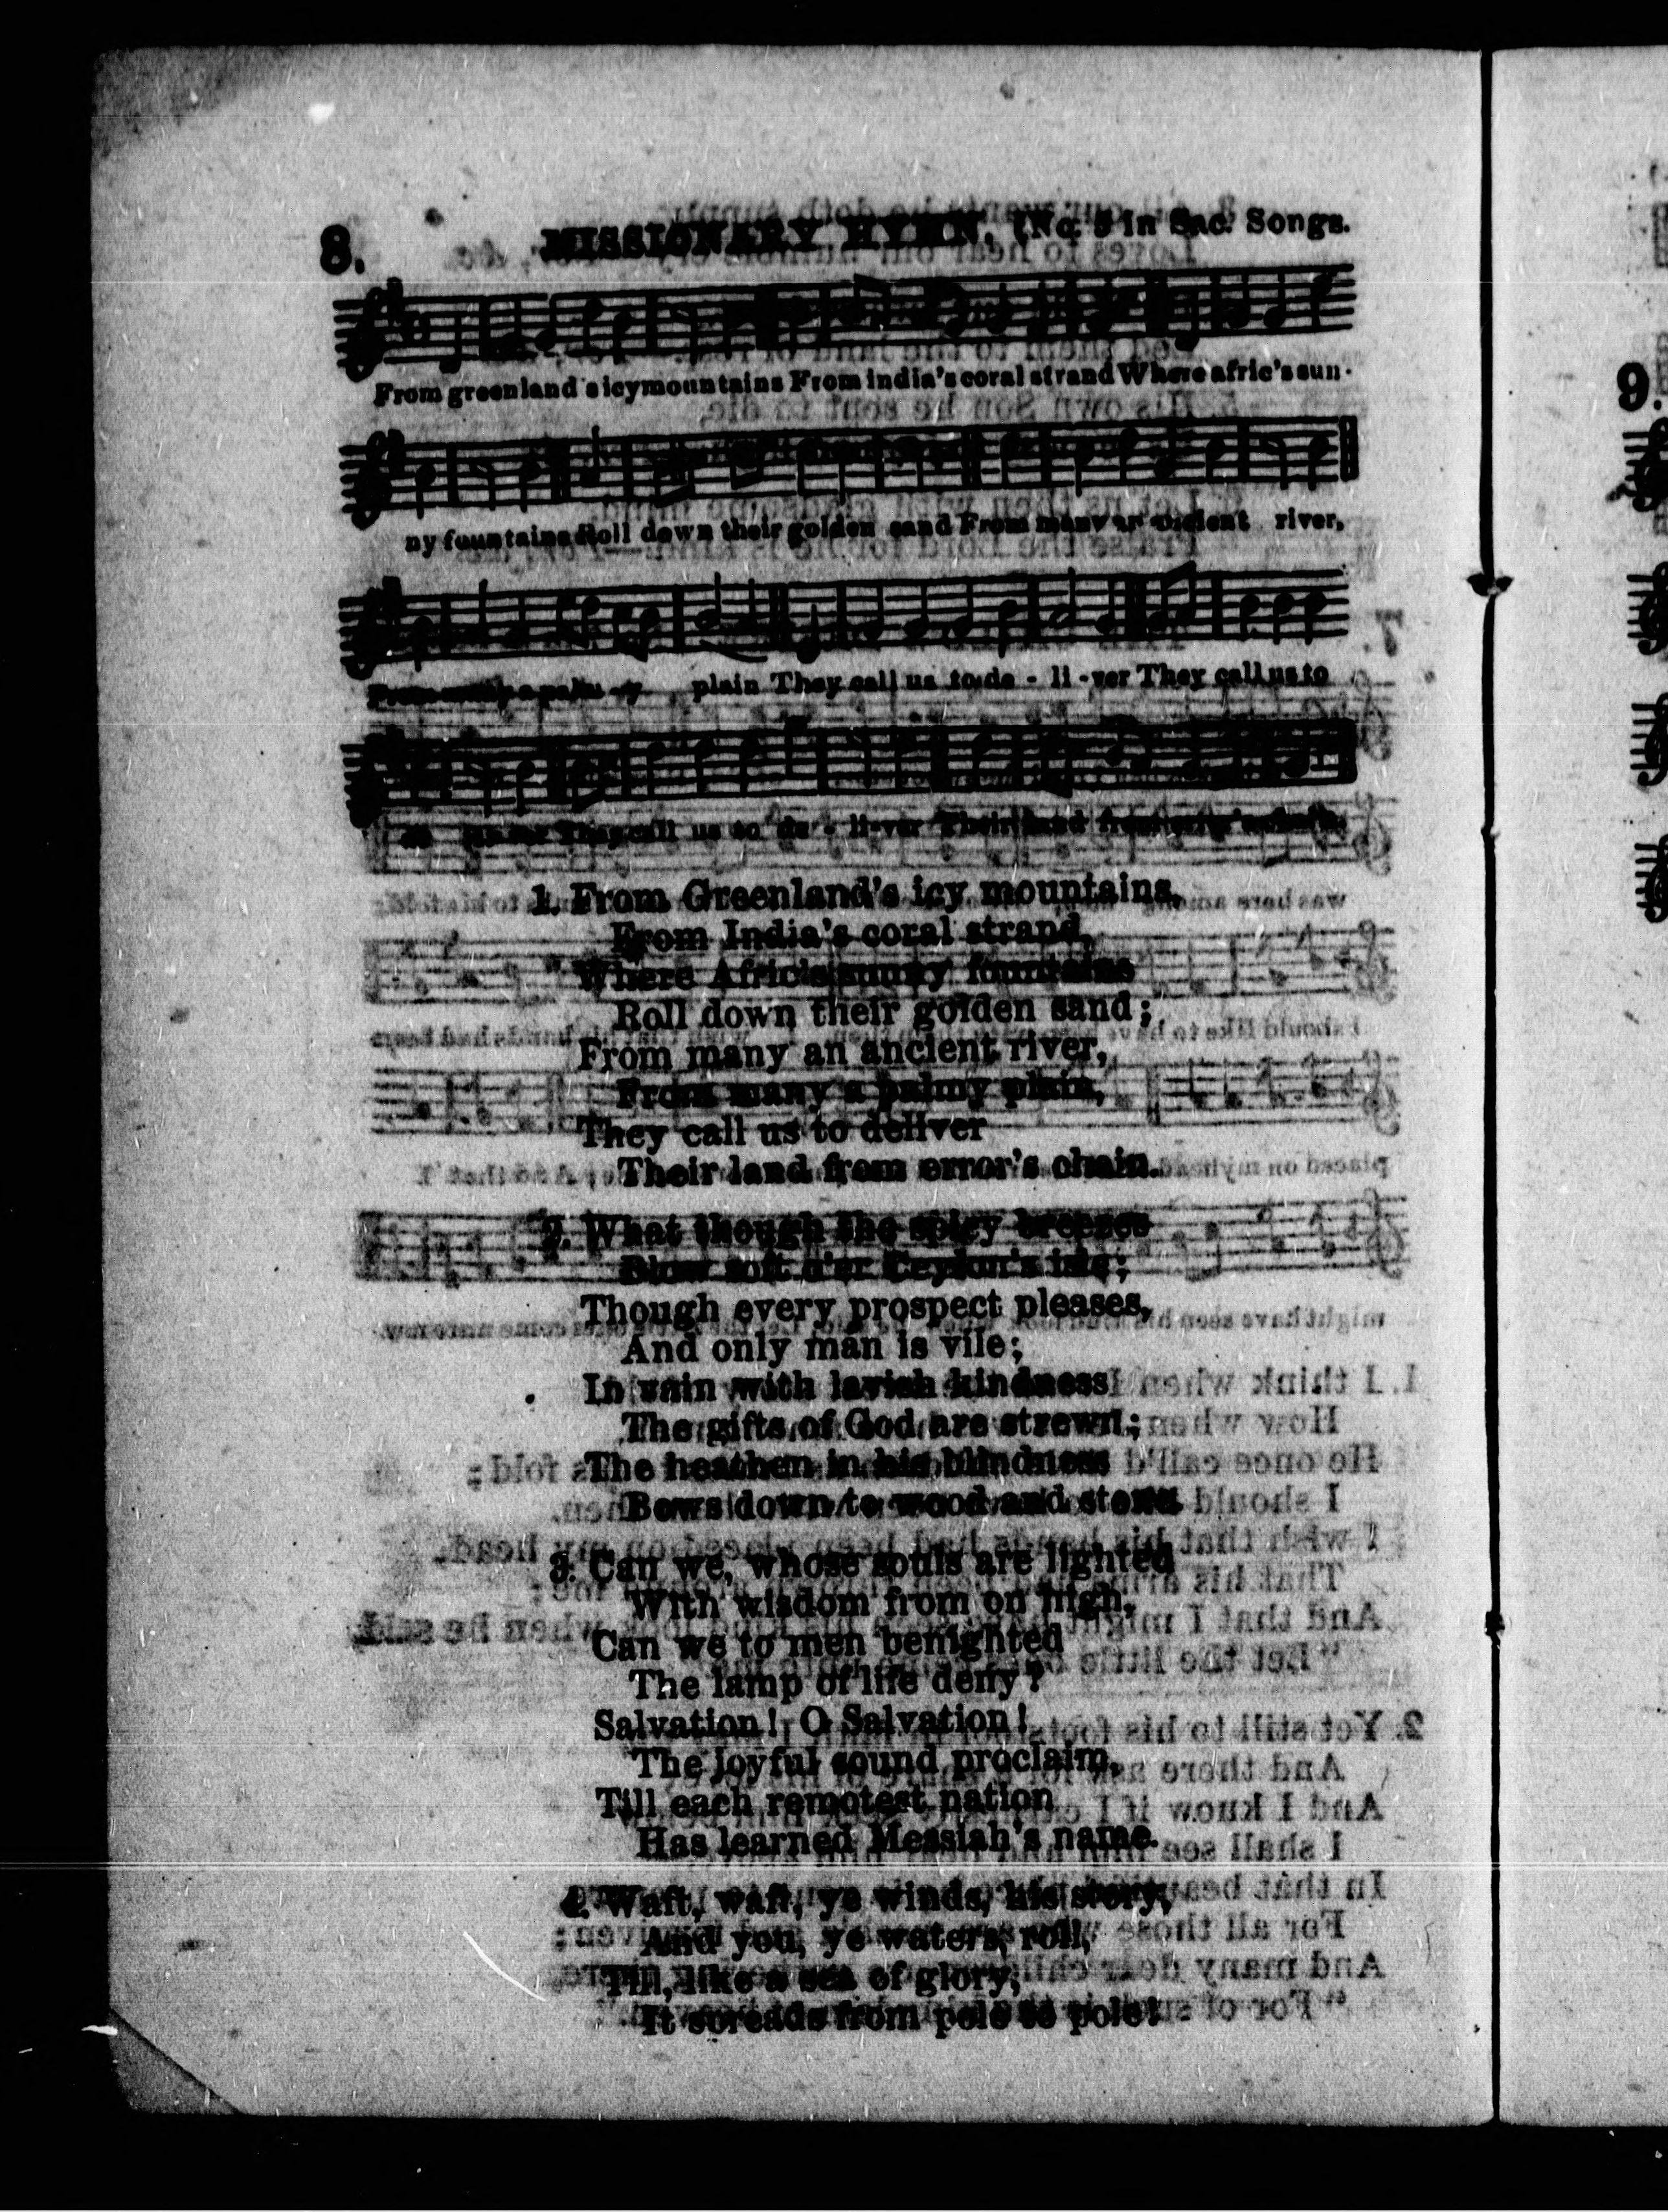 8. MISSIONARY HYMN. (No. 5 in Sac. Songs.
From greenland's icymountains From india's coral strand Where afric's sun-
ny fountains Roll down their golden sand From many an ancient river,
From many a palm-y plain They call us to de - li -ver They call us to
They call us to de - li-ver Their land from
1. From Greenland's icy mountains,
From India's coral strand,
Where Afric's sunny fountains
Roll down their golden sand;
From many an ancient river,
From many a palmy plain,
They call us to deliver
Their land from error's chain.
2. What though the spicy breezes
Blow soft o'er Ceylon's isle;
Though every prospect pleases,
And only man is vile;
In vain with lavish kindness
The gifts of God are strewn;
The heathen in his blindness
Bows down to wood and stone.
3. Can we, whose souls are lighted
With wisdom from on high,
Can we to men benighted
The lamp of life deny?
Salvation! O Salvation!
The joyful sound proclaim,
Till each remotest nation
Has learned Messiah's name.
4. Waft, waft, ye winds, his story,
And you, ye waters, roll,
Till, like a sea of glory,
It spreads from pole to pole!
9.